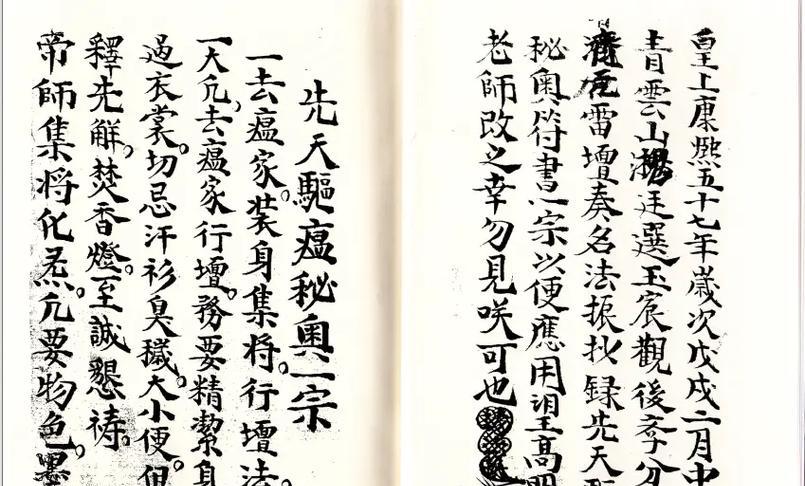 皇上康熈五十七年歲次戊戌二月中
青雲山 廷選玉宸觀後李分
雷壇奏名法振抄録先天
秘奥符書一宗以便應用望高明
老師改之幸勿見咲可也
先天驅瘟秘奥一宗
一去瘟家。装身集将。行壇法。
一大凢去瘟家行壇。務要精潔身
過衣裳。切忌汗衫臭穢。大小便。但
釋先觧。焚香燈。至誠懇祷。
帝師集将化炁。凢要物色。墨